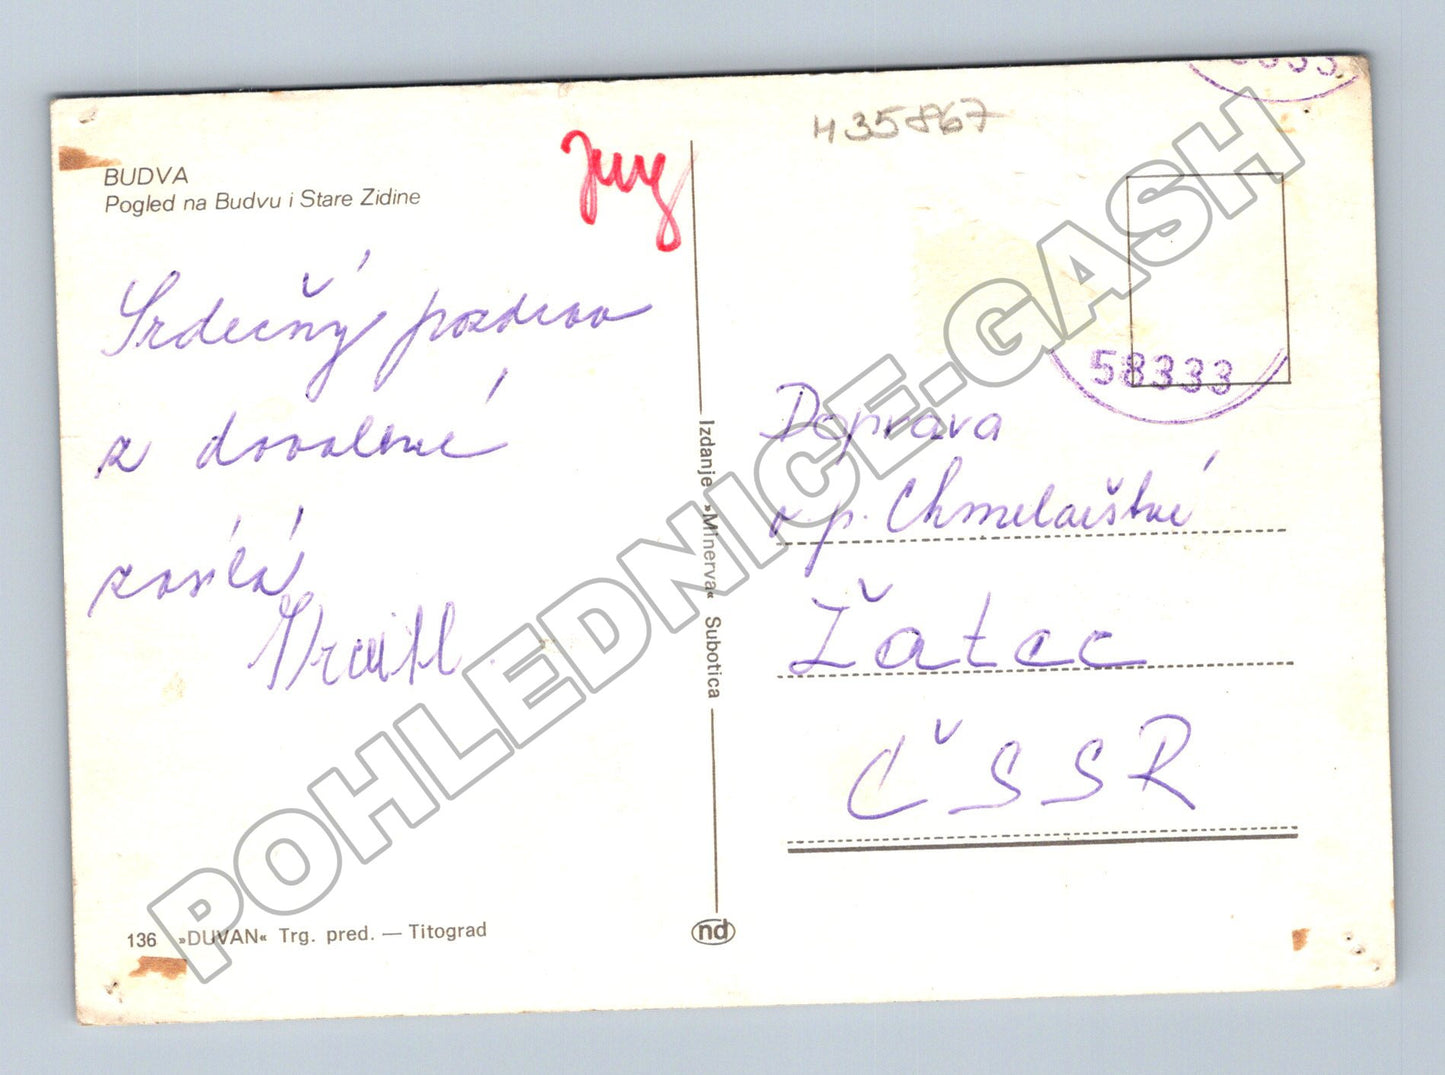 BUDVA
Pogled na Budvu i Stare Zidine
Jug
H35867
58333
Srdečný pozdrav
z dovolené
zasílá
Doprava
o. p. Chmelařství
Žatec
ČSSR
Izdanje »Minerva« Subotica
136 »DUVAN« Trg. pred. — Titograd
nd
POHLEDNICE-GASH